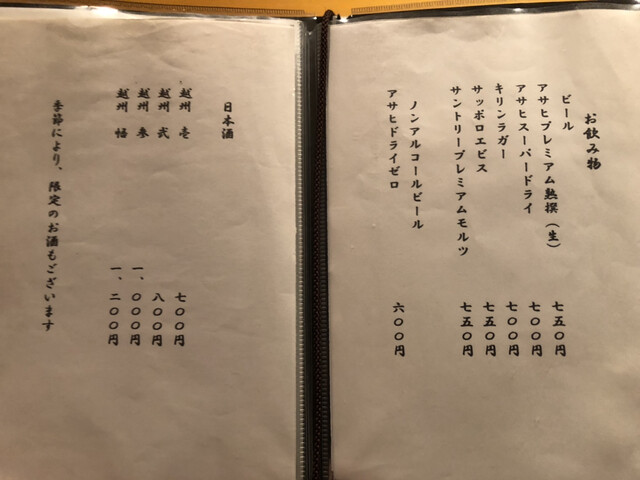 お飲み物
ビール
アサヒプレミアム熟撰（生） 七五〇円
アサヒスーパードライ 七〇〇円
キリンラガー 七〇〇円
サッポロエビス 七五〇円
サントリープレミアムモルツ 七五〇円
ノンアルコールビール
アサヒドライゼロ 六〇〇円
日本酒
越州 壱 七〇〇円
越州 弐 八〇〇円
越州 参 一、〇〇〇円
越州 悟 一、二〇〇円
季節により、限定のお酒もございます